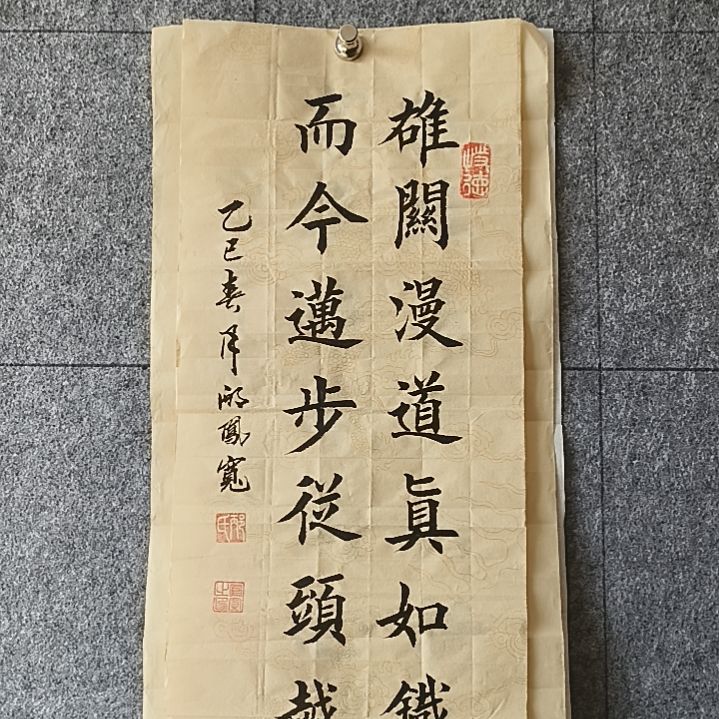 雄關漫道眞如鐵
而今邁步從頭越
乙巳春月鳳寬